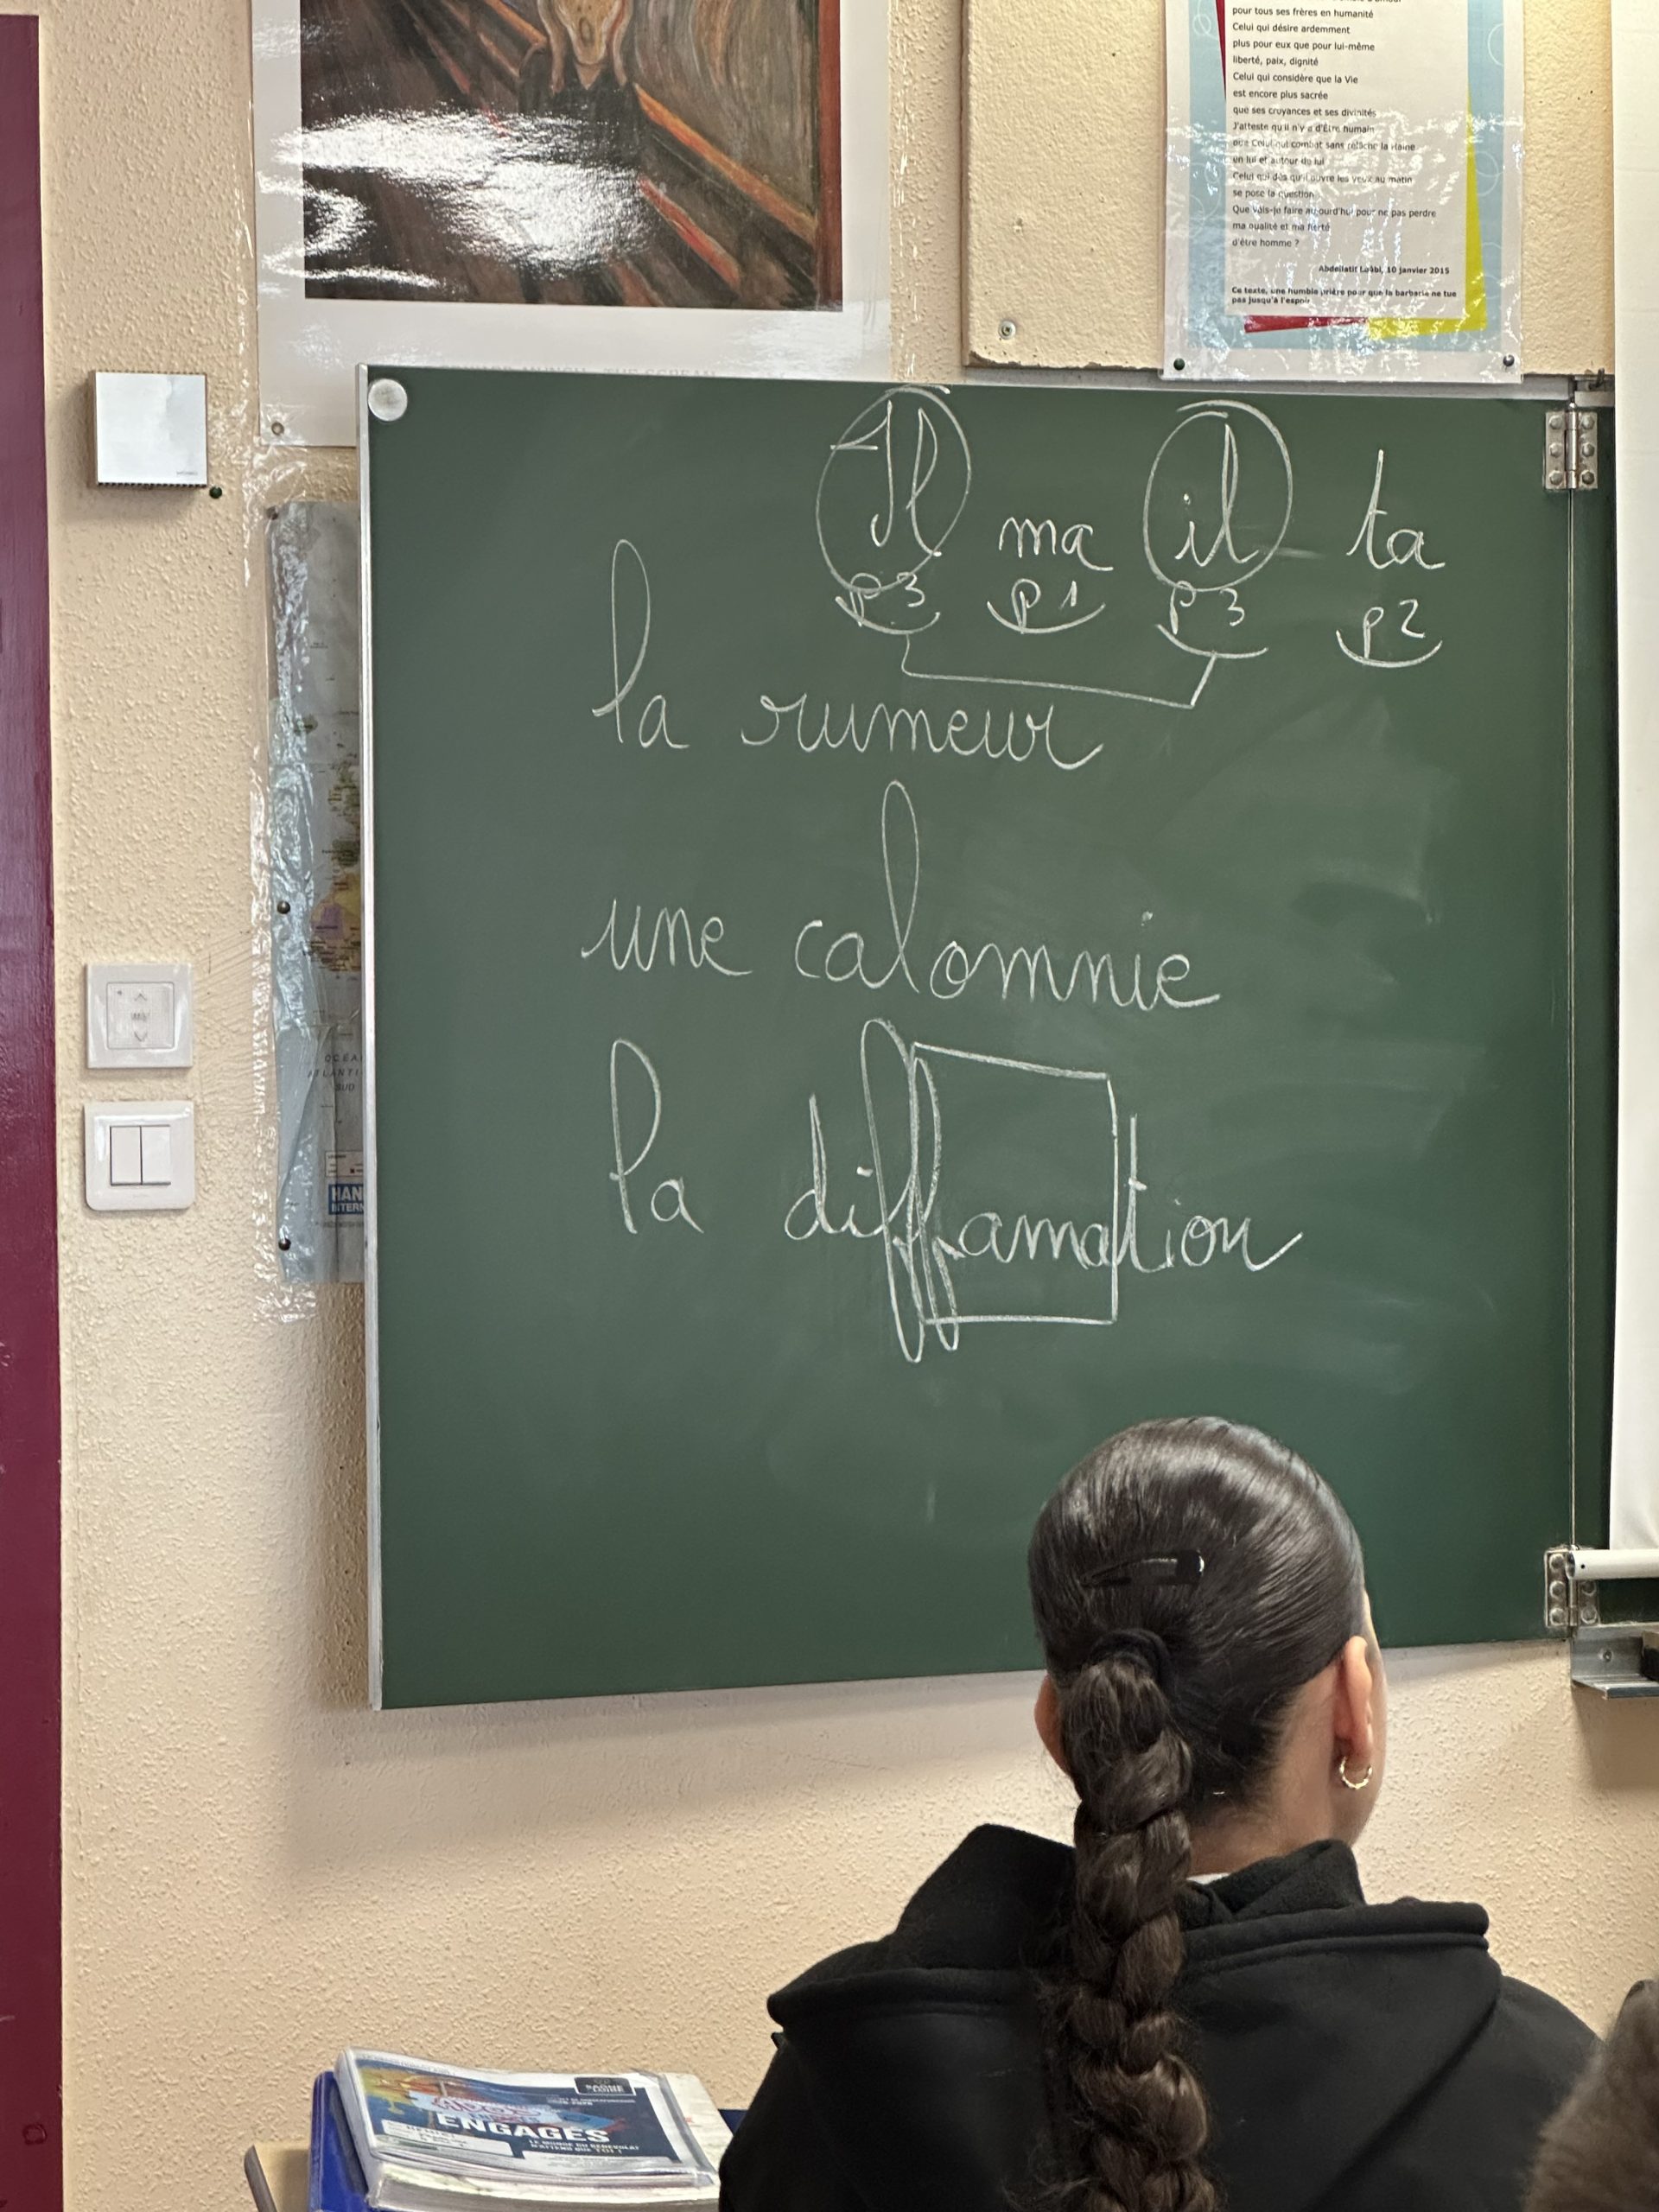 pour tous ses frères en humanité
Celui qui désire ardemment
plus pour eux que pour lui-même
liberté, paix, dignité
Celui qui considère que la Vie
est encore plus sacrée
que ses croyances et ses divinités
J'atteste qu'il n'y a d'Être humain
que Celui qui combat sans relâche la Haine
en lui et autour de lui
Celui qui dès qu'il ouvre les yeux au matin
se pose la question
Que vais-je faire aujourd'hui pour ne pas perdre
ma qualité et ma fierté
d'être homme ?
Abdellatif Laâbi, 10 janvier 2015
Ce texte, une humble prière pour que la barbarie ne tue
pas jusqu'à l'espoir
Il ma il ta
P3 P1 P3 P2
la rumeur
une calomnie
la diffamation
SUD
HAN
INTERN
SAÔNE
LOIRE
ENGAGÉS
LE MONDE DU BÉNÉVOLAT
N'ATTEND QUE TOI !